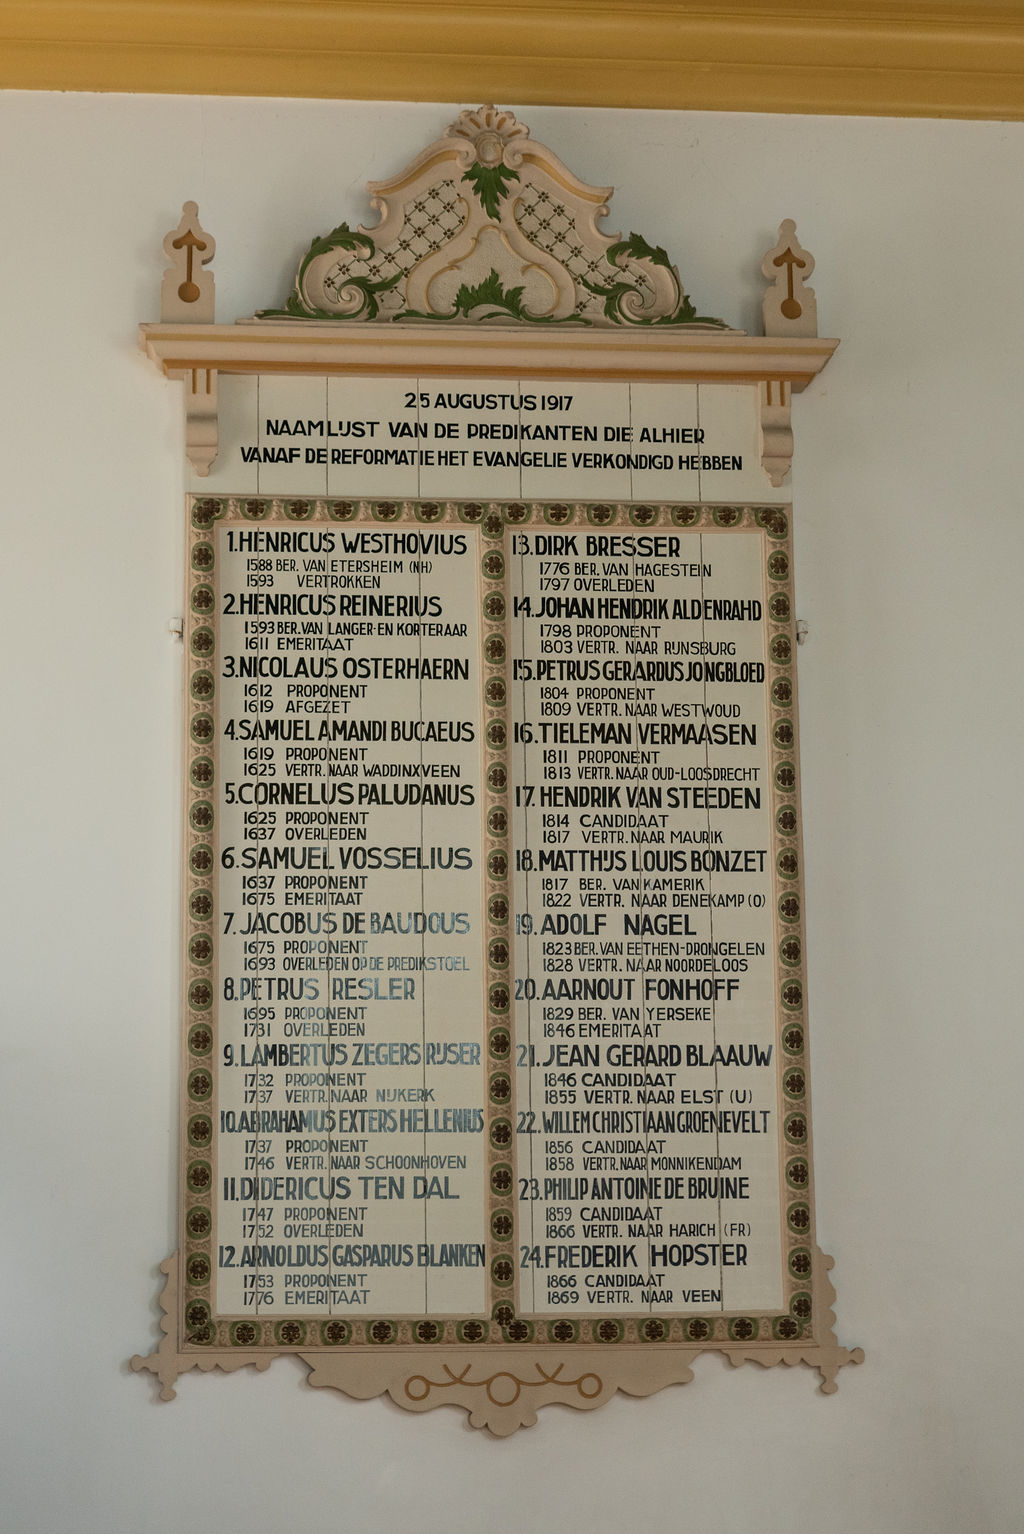 25 AUGUSTUS 1917
NAAMLIJST VAN DE PREDIKANTEN DIE ALHIER
VANAF DE REFORMATIE HET EVANGELIE VERKONDIGD HEBBEN
1. HENRICUS WESTHOVIUS
1588 BER. VAN ETERSHEIM (NH)
1593 VERTROKKEN
2. HENRICUS REINERIUS
1593 BER. VAN LANGER- EN KORTERAAR
1611 EMERITAAT
3. NICOLAUS OSTERHAERN
1612 PROPONENT
1619 AFGEZET
4. SAMUEL AMANDI BUCAEUS
1619 PROPONENT
1625 VERTR. NAAR WADDINXVEEN
5. CORNELUS PALUDANUS
1625 PROPONENT
1637 OVERLEDEN
6. SAMUEL VOSSELIUS
1637 PROPONENT
1675 EMERITAAT
7. JACOBUS DE BAUDOUS
1675 PROPONENT
1693 OVERLEDEN OP DE PREDIKSTOEL
8. PETRUS RESLER
1695 PROPONENT
1731 OVERLEDEN
9. LAMBERTUS ZEGERS RIJSER
1732 PROPONENT
1737 VERTR. NAAR NIJKERK
10. ABRAHAMUS EXTERS HELLENIUS
1737 PROPONENT
1746 VERTR. NAAR SCHOONHOVEN
11. DIDERICUS TEN DAL
1747 PROPONENT
1752 OVERLEDEN
12. ARNOLDUS GASPARUS BLANKEN
1753 PROPONENT
1776 EMERITAAT
13. DIRK BRESSER
1776 BER. VAN HAGESTEIN
1797 OVERLEDEN
14. JOHAN HENDRIK ALDENRAHD
1798 PROPONENT
1803 VERTR. NAAR RIJNSBURG
15. PETRUS GERARDUS JONGBLOED
1804 PROPONENT
1809 VERTR. NAAR WESTWOUD
16. TIELEMAN VERMAASEN
1811 PROPONENT
1813 VERTR. NAAR OUD-LOOSDRECHT
17. HENDRIK VAN STEEDEN
1814 CANDIDAAT
1817 VERTR. NAAR MAURIK
18. MATTHIJS LOUIS BONZET
1817 BER. VAN KAMERIK
1822 VERTR. NAAR DENEKAMP (O)
19. ADOLF NAGEL
1823 BER. VAN EETHEN-DRONGELEN
1828 VERTR. NAAR NOORDELOOS
20. AARNOUT FONHOFF
1829 BER. VAN YERSEKE
1846 EMERITAAT
21. JEAN GERARD BLAAUW
1846 CANDIDAAT
1855 VERTR. NAAR ELST (U)
22. WILLEM CHRISTIAAN GROENEVELT
1856 CANDIDAAT
1858 VERTR. NAAR MONNIKENDAM
23. PHILIP ANTOINE DE BRUINE
1859 CANDIDAAT
1866 VERTR. NAAR HARICH (FR)
24. FREDERIK HOPSTER
1866 CANDIDAAT
1869 VERTR. NAAR VEEN